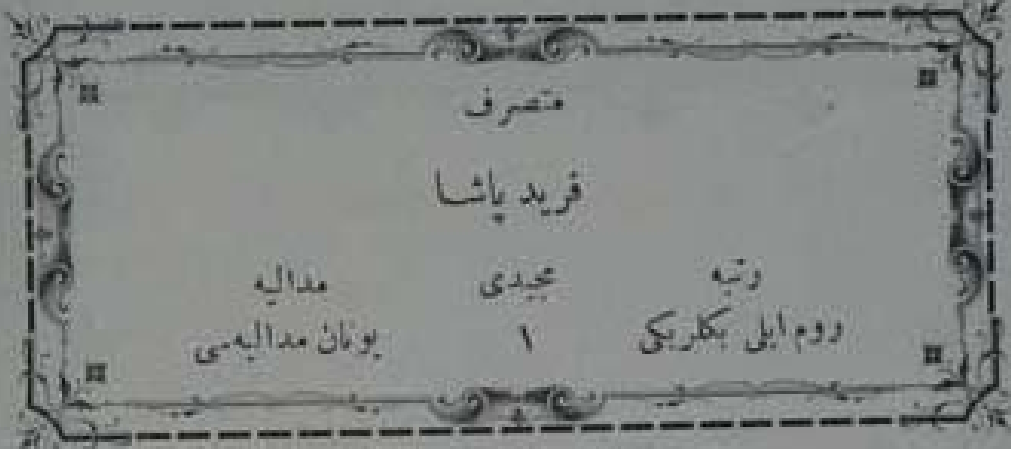 متصرف
فريد پاشا
رتبه مجيدى مداليه
روم ايلى بكلربكى ١ يونان مداليه‌سى